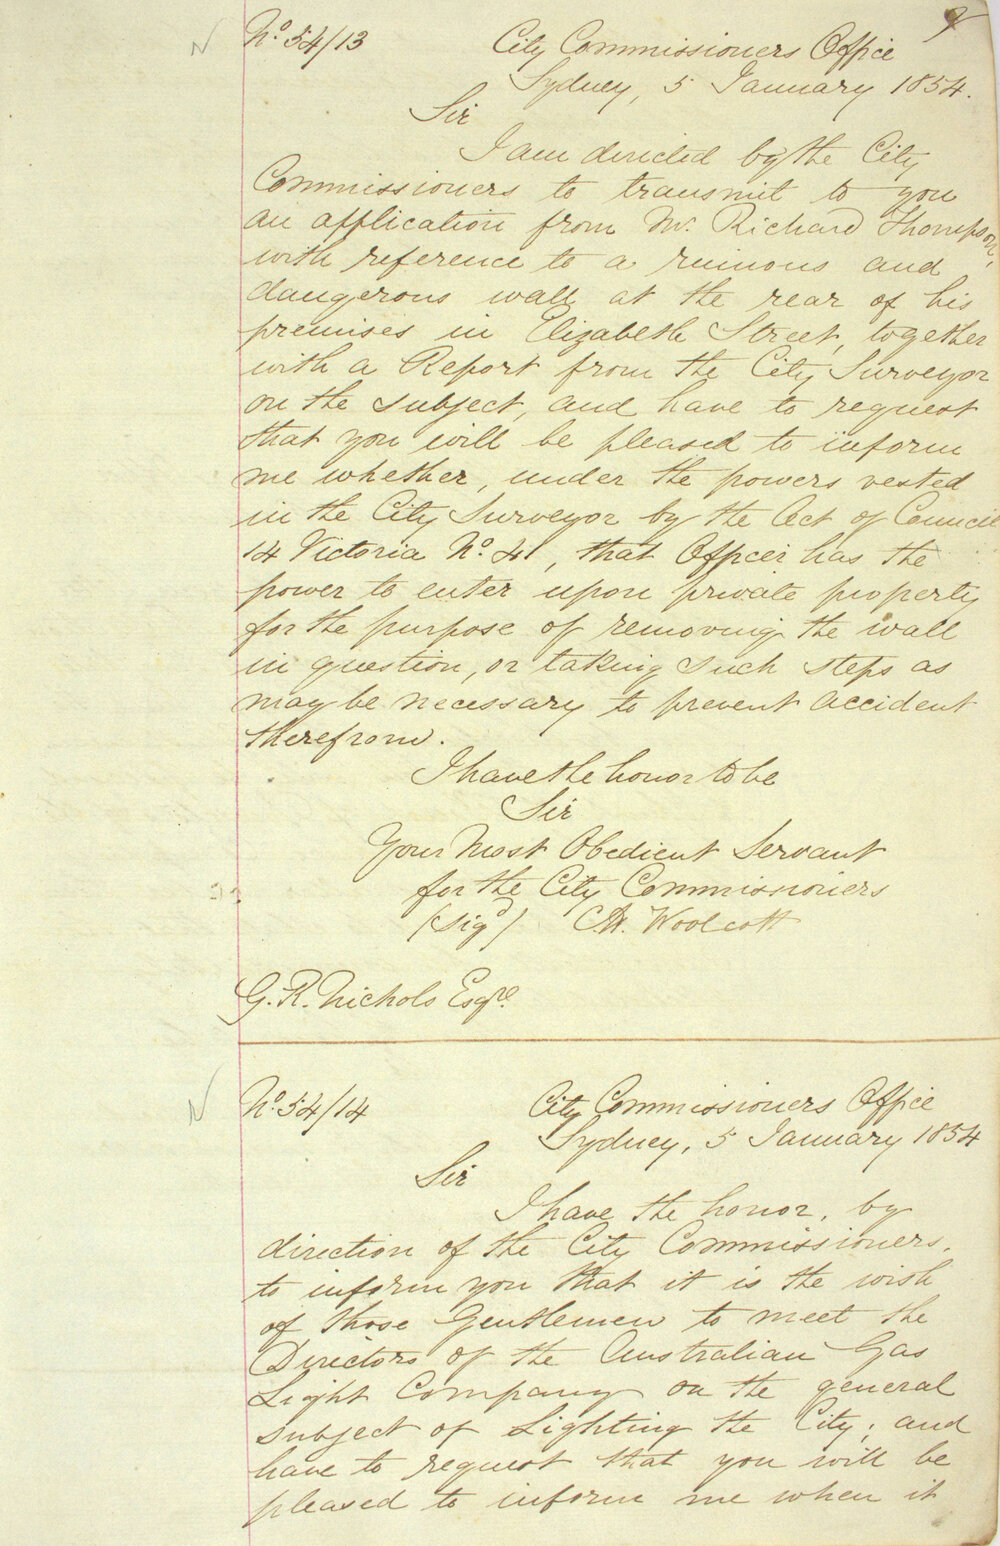 9
No. 54/13
City Commissioners Office
Sydney, 5 January 1854.
Sir
I am directed by the City
Commissioners to transmit to you
an application from Mr. Richard Thompson,
with reference to a ruinous and
dangerous wall at the rear of his
premises in Elizabeth Street, together
with a Report from the City Surveyor
on the subject, and have to request
that you will be pleased to inform
me whether, under the powers vested
in the City Surveyor by the Act of Council
14 Victoria No. 41, that Officer has the
power to enter upon private property
for the purpose of removing the wall
in question, or taking such steps as
may be necessary to prevent accident
therefrom.
I have the honor to be
Sir
Your Most Obedient Servant
for the City Commissioners
(Sigd) C.H. Woolcott
G. R. Nichols Esqre.
No. 54/14
City Commissioners Office
Sydney, 5 January 1854
Sir
I have the honor, by
direction of the City Commissioners,
to inform you that it is the wish
of those Gentlemen to meet the
Directors of the Australian Gas
Light Company on the general
subject of Lighting the City; and
have to request that you will be
pleased to inform me when it